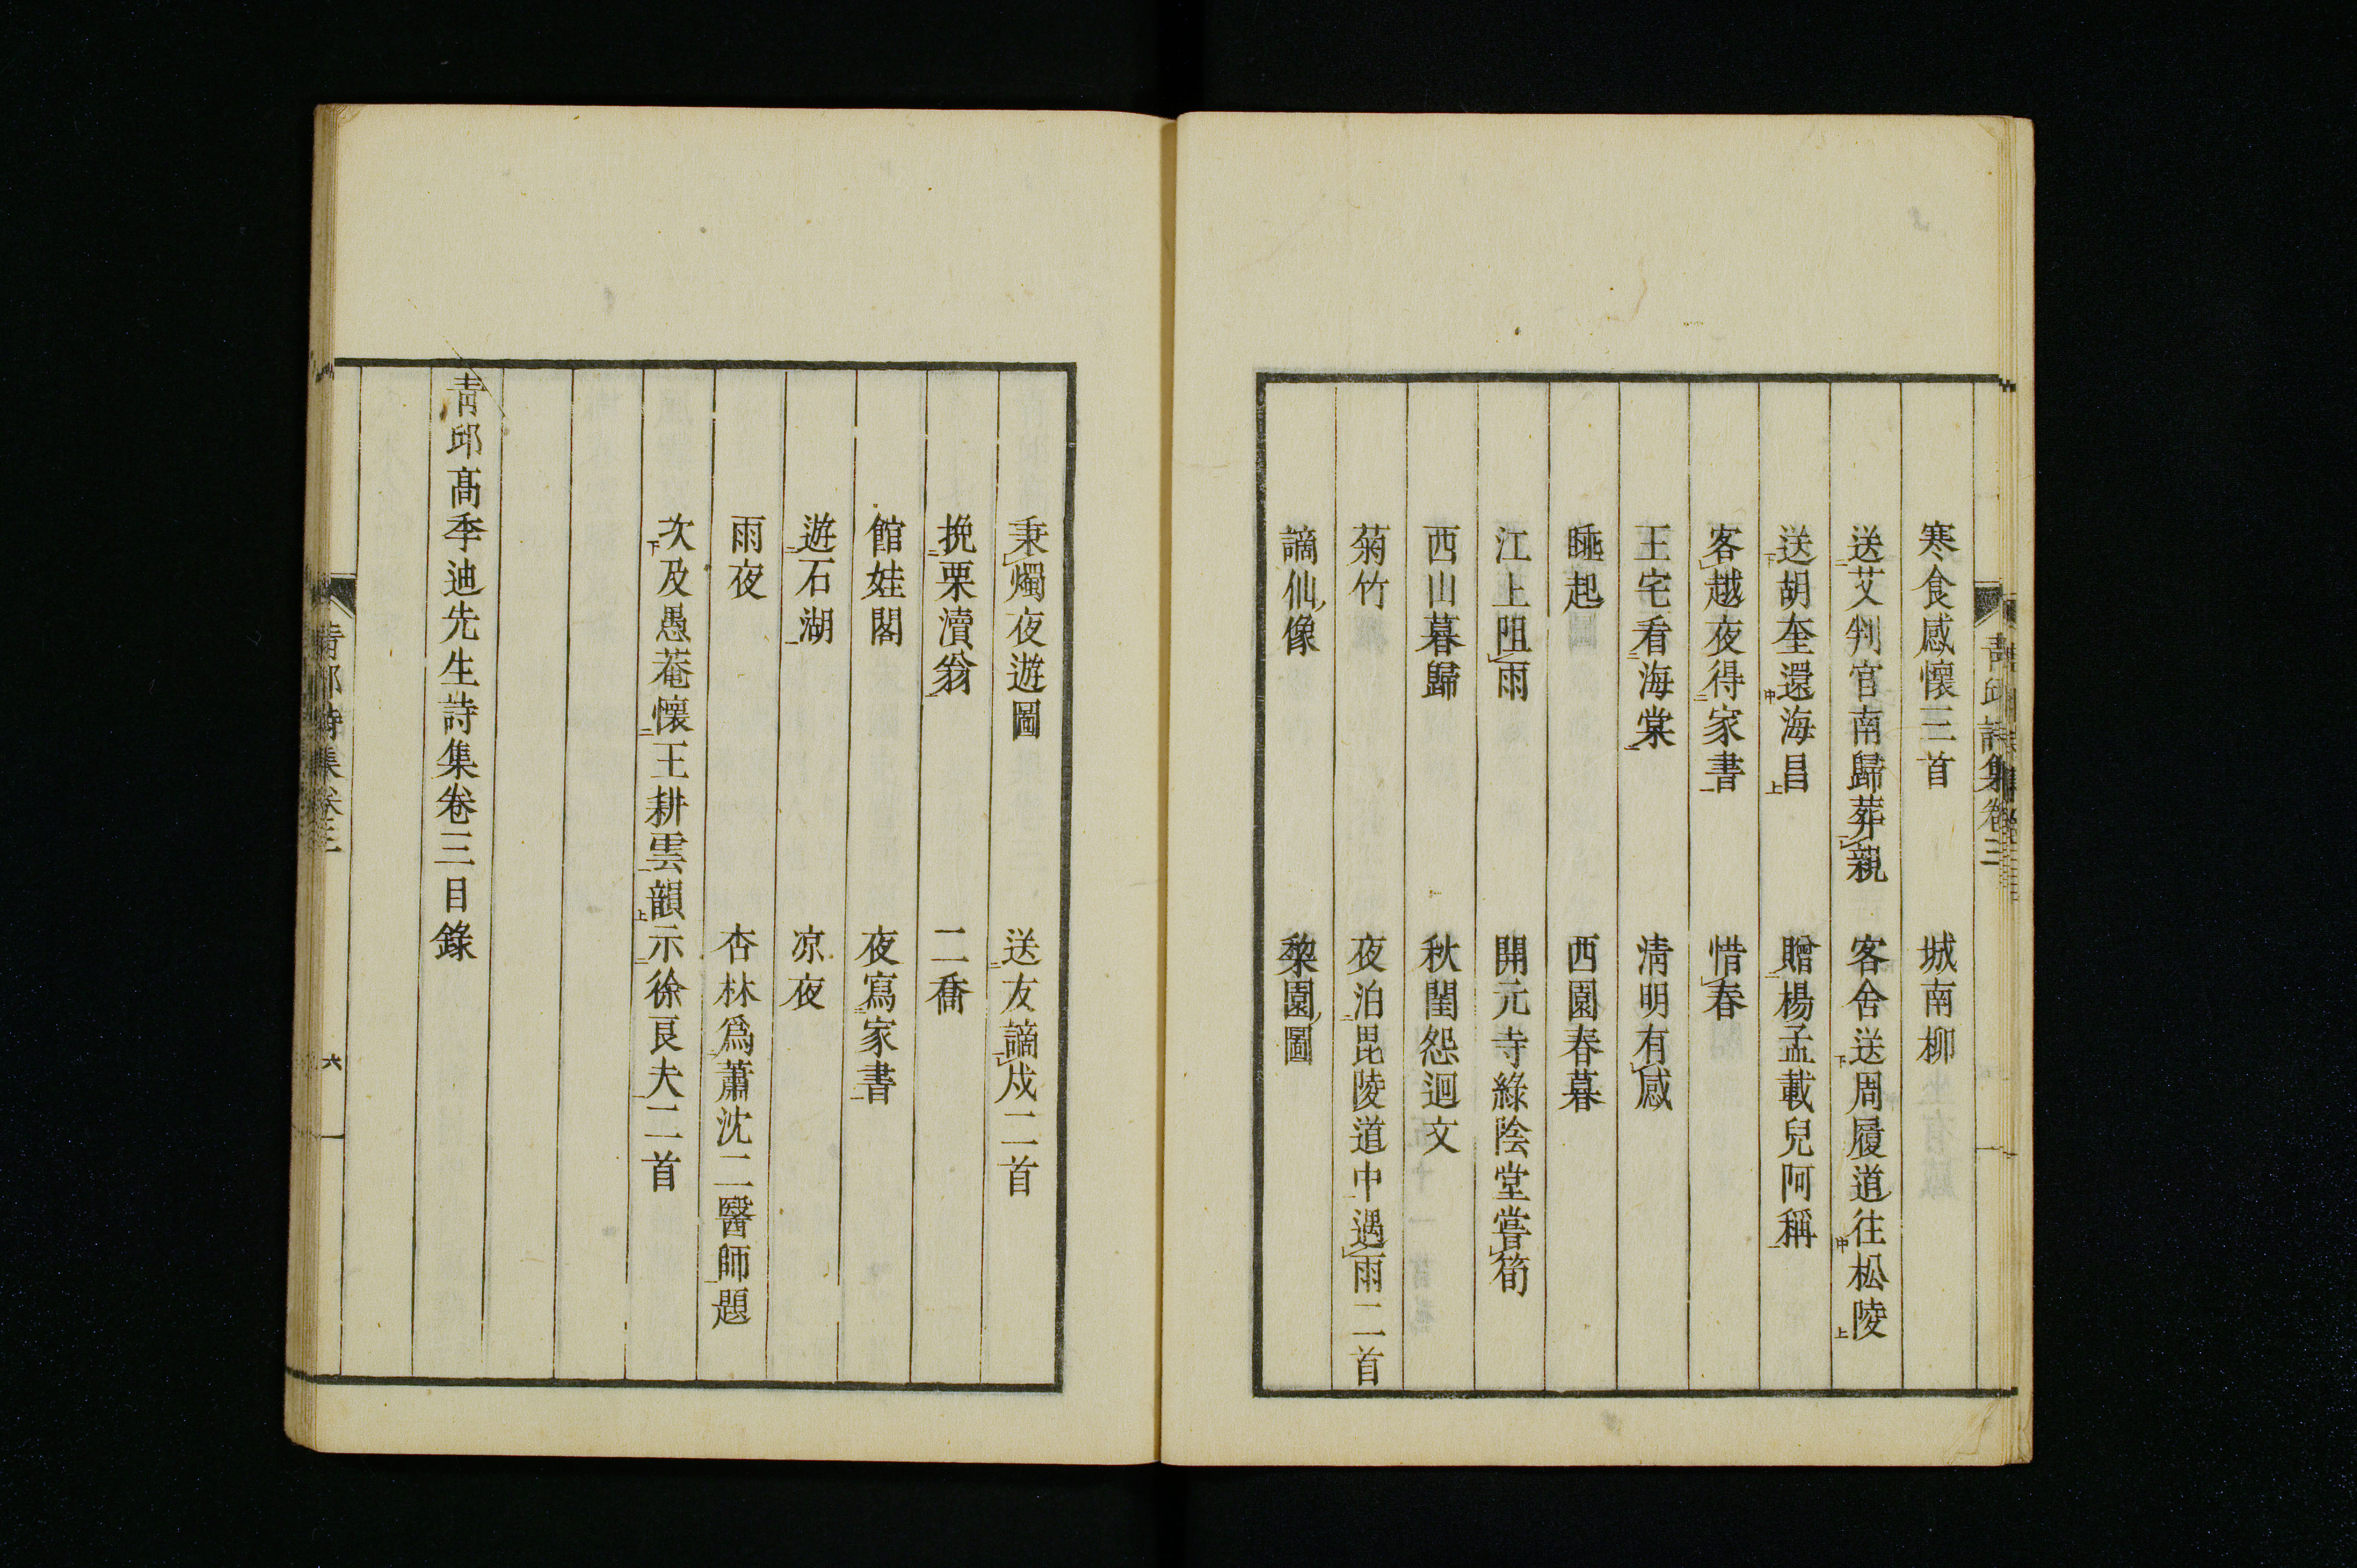 青邱詩集卷三
寒食感懷三首　城南柳
送艾判官南歸葬親　客舍送周履道往松陵
送胡奎還海昌　贈楊孟載兒阿稱
客越夜得家書　惜春
王宅看海棠　清明有感
睡起　西園春暮
江上阻雨　開元寺綠陰堂嘗筍
西山暮歸　秋閨怨迴文
菊竹　夜泊毘陵道中遇雨二首
謫仙像　棃園圖
秉燭夜遊圖　送友謫戍二首
挽栗瀆翁　二喬
館娃閣　夜寫家書
遊石湖　凉夜
雨夜　杏林爲蕭沈二醫師題
次及愚菴懷王耕雲韻示徐良夫二首
青邱高季迪先生詩集卷三目錄
青邱詩集卷三　六